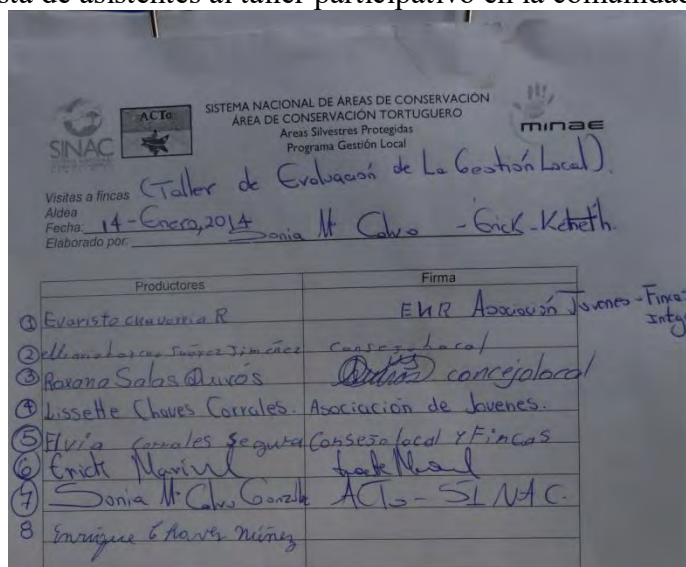 sta de asistentes al taller participativo en la comunidad
SINAC
ACTo
SISTEMA NACIONAL DE AREAS DE CONSERVACIÓN
ÁREA DE CONSERVACIÓN TORTUGUERO
Areas Silvestres Protegidas
Programa Gestión Local
minae
Visitas a fincas (Taller de Evaluación de La Gestión Local).
Aldea
Fecha: 14-Enero, 2014
Elaborado por: Sonia Mª Calvo - Erick - Keneth.
Productores Firma
① Evaristo Chavarria R EHR Asociación Jovenes - Fincas
Integ
② Suárez Jiménez Consejo local
③ Roxana Salas Quirós concejo local
④ Lissette Chaves Corrales. Asociación de Jovenes.
⑤ Elvia Corrales Segura Consejo local y Fincas
⑥ Erick
⑦ Sonia Mª Calvo Gonzále ACTo - SINAC.
8 Enrique Chaves Núñez